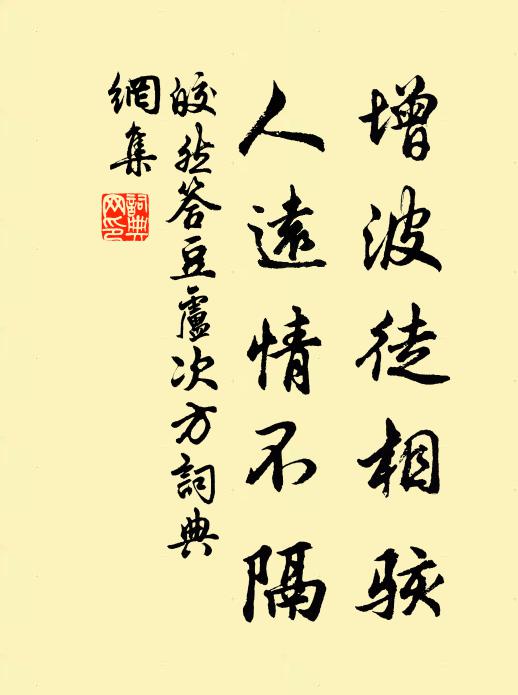 增波徒相駭
人遠情不隔
皎然答豆盧次方詞典
網集
詞典
网印